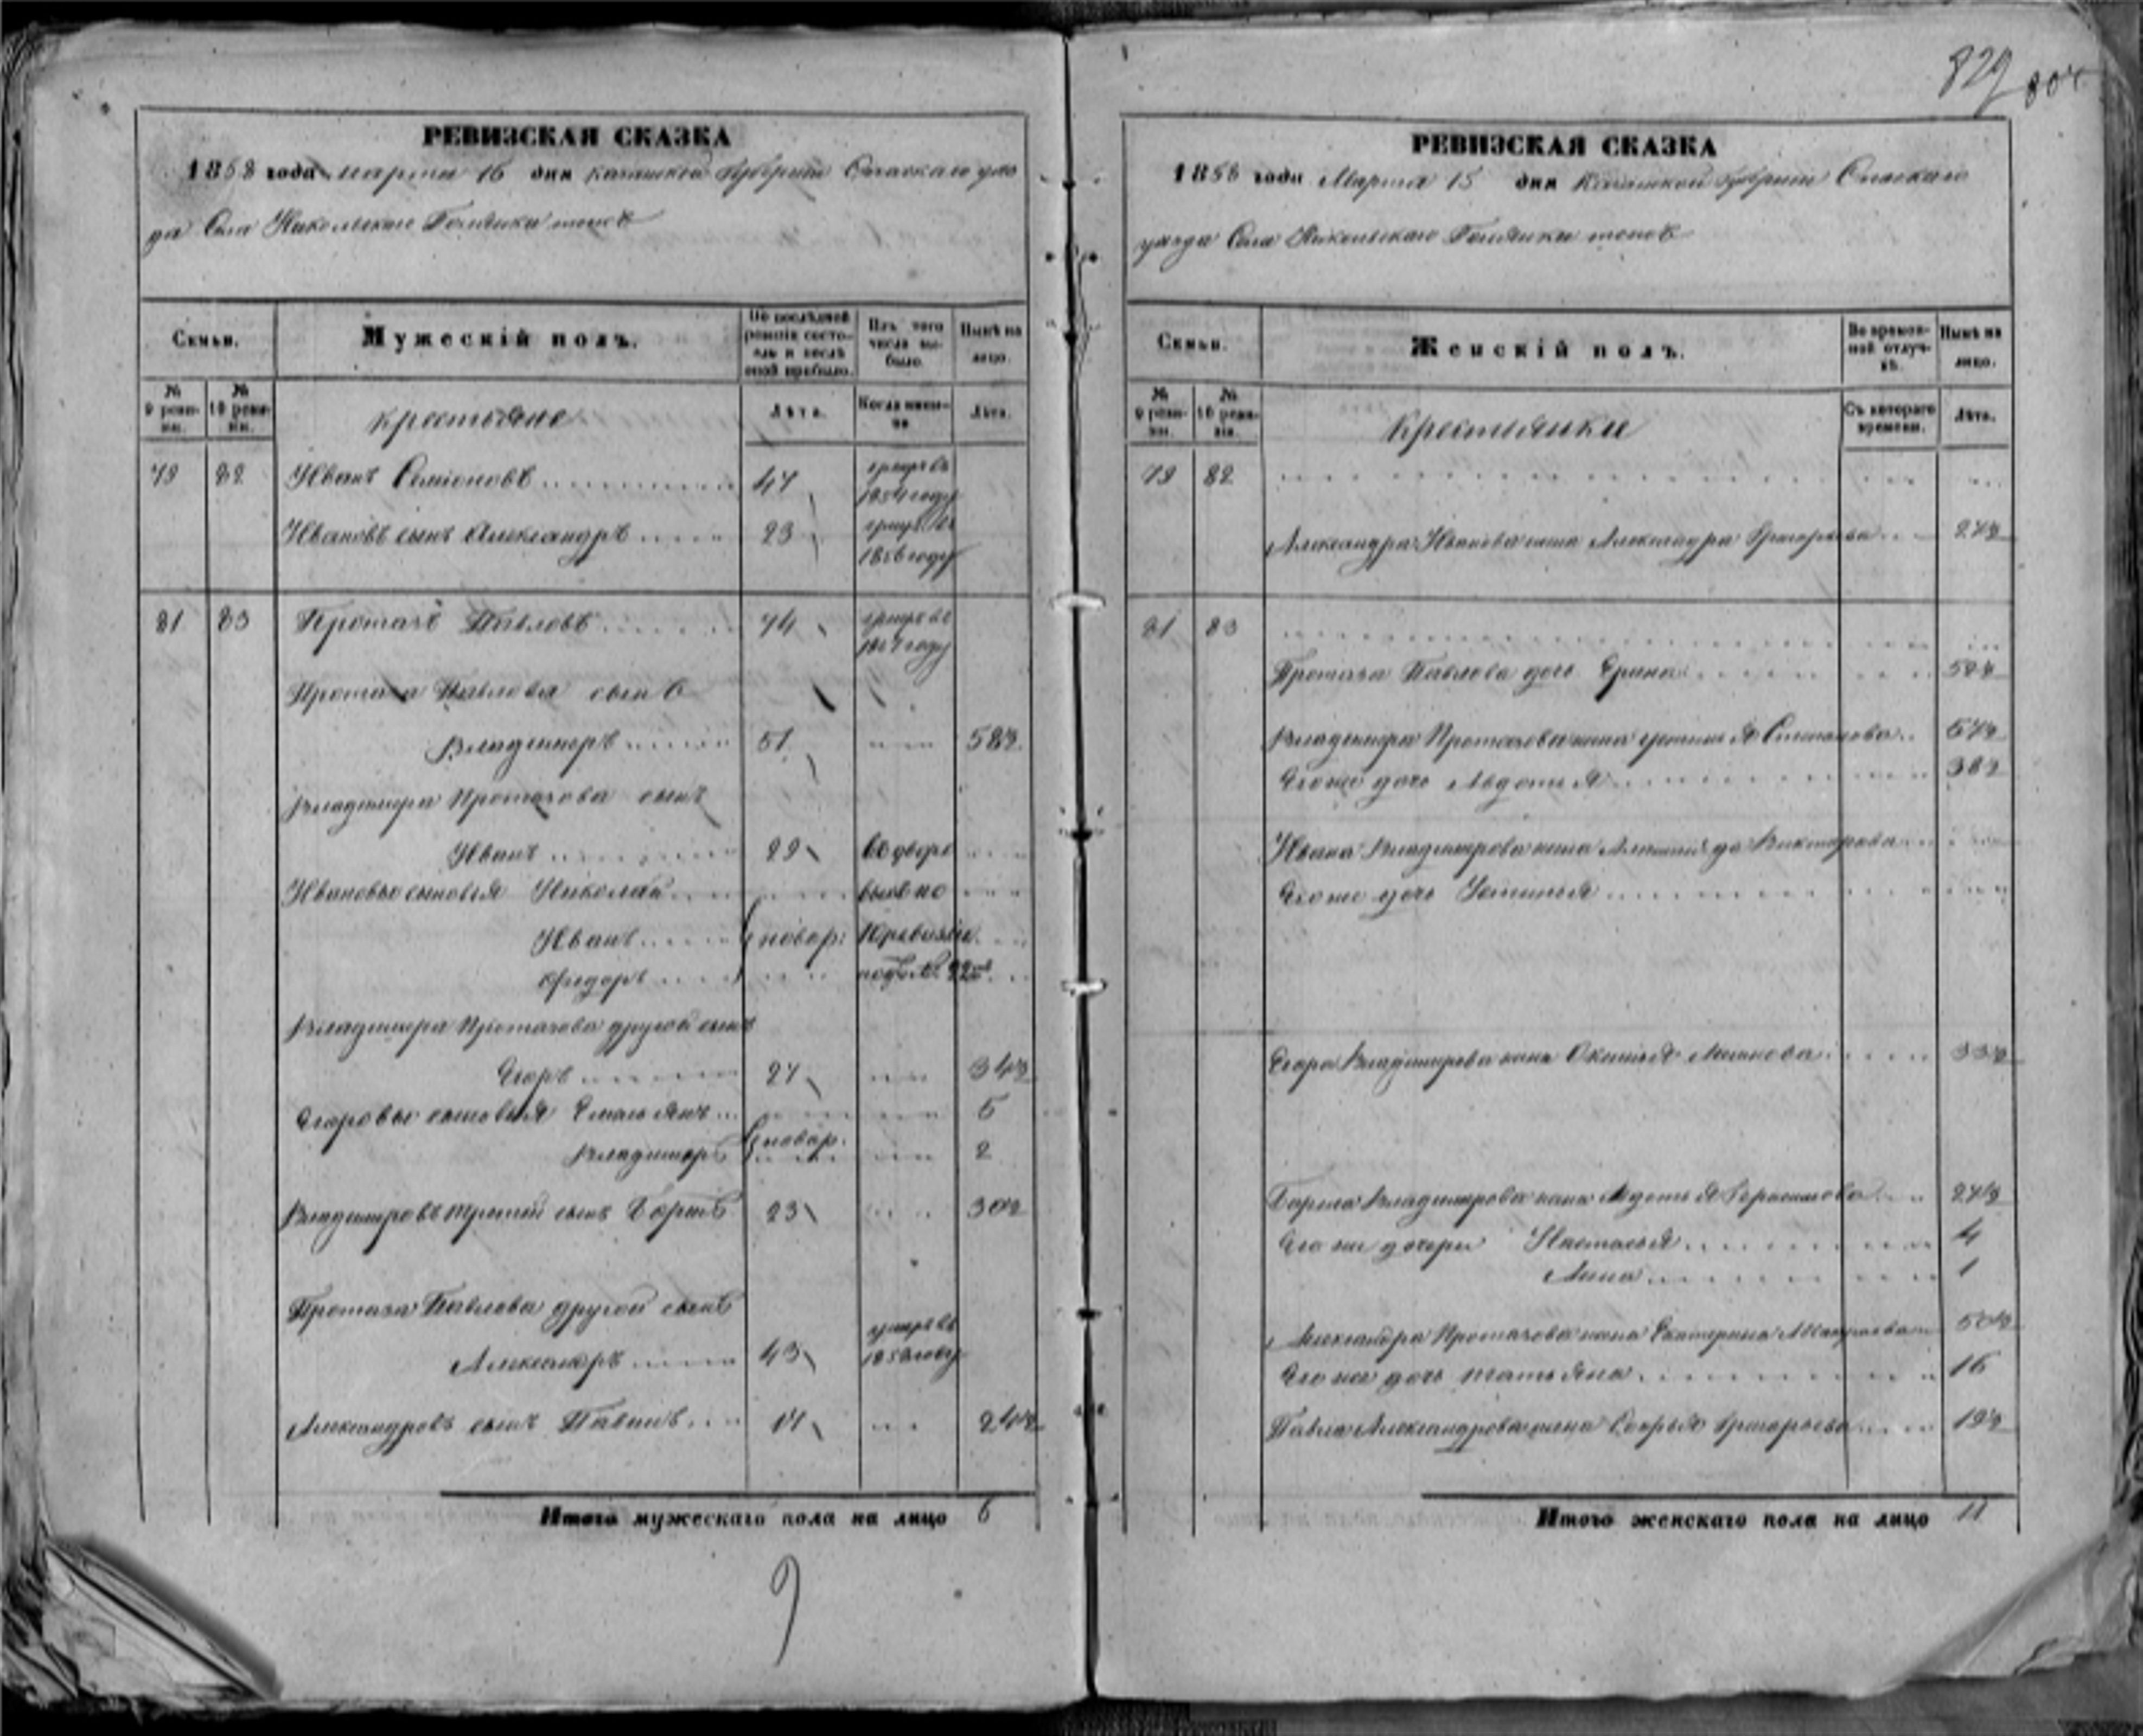 829 804
РЕВИЗСКАЯ СКАЗКА
1858 года марта 15 дня Казанской Губернии Спаскаго уез
да Села Никольскаго тожъ
Семьи.
Мужескій полъ.
По послѣдней ревизіи состояло и послѣ оной прибыло.
Изъ того числа выбыло.
Нынѣ на лицо.
№ 9 ревизіи.
№ 10 ревизіи.
крестьяне
Лѣта.
Когда именно
Лѣта.
79 82 Иванъ Семіоновъ 47 умре въ 1854 году
Ивановъ сынъ Александръ 23 умре въ 1856 году
81 83 Протасъ Павловъ 74 умре въ году
Протаса Павлова сынъ
Владимиръ 51 58½
Владимира Протасова сынъ
Иванъ 29 во дворе
Ивановы сыновья Николай выше по
Иванъ новор: 10 ревизіи
Федоръ подъ №
Владимира Протасова другой сынъ
Егоръ 27 34½
Егоровы сыновья Емельянъ 5
Владимиръ новор. 2
Владимировъ третий сынъ Борисъ 23 30½
Протаса Павлова другой сынъ
Александръ 43 умре въ году
Александровъ сынъ Павелъ 17 24½
Итого мужескаго пола на лицо 6
9
РЕВИЗСКАЯ СКАЗКА
1858 года Марта 15 дня Казанской Губернии Спаскаго
уезда Села Никольскаго тожъ
Семьи.
Женскій полъ.
Во временной отлучкѣ.
Нынѣ на лицо.
№ 9 ревизіи.
№ 10 ревизіи.
Крестьянки
Съ котораго времени.
Лѣта.
79 82
Александра Иванова жена Александра Григорьева 27½
81 83
Протаса Павлова дочь Ерина 50½
Владимира Протасова жена Устинья Степанова 57½
Его же дочь Авдотья 38½
Ивана Владимирова жена Викторова
Его же дочь Устинья
Егора Владимирова жена 33½
Бориса Владимирова жена Авдотья Герасимова 27½
Его же дочери Настасья 4
Анна 1
Александра Протасова жена Екатерина 50½
Его же дочь Татьяна 16
Павла Александрова жена Софья Григорьева 19½
Итого женскаго пола на лицо 11